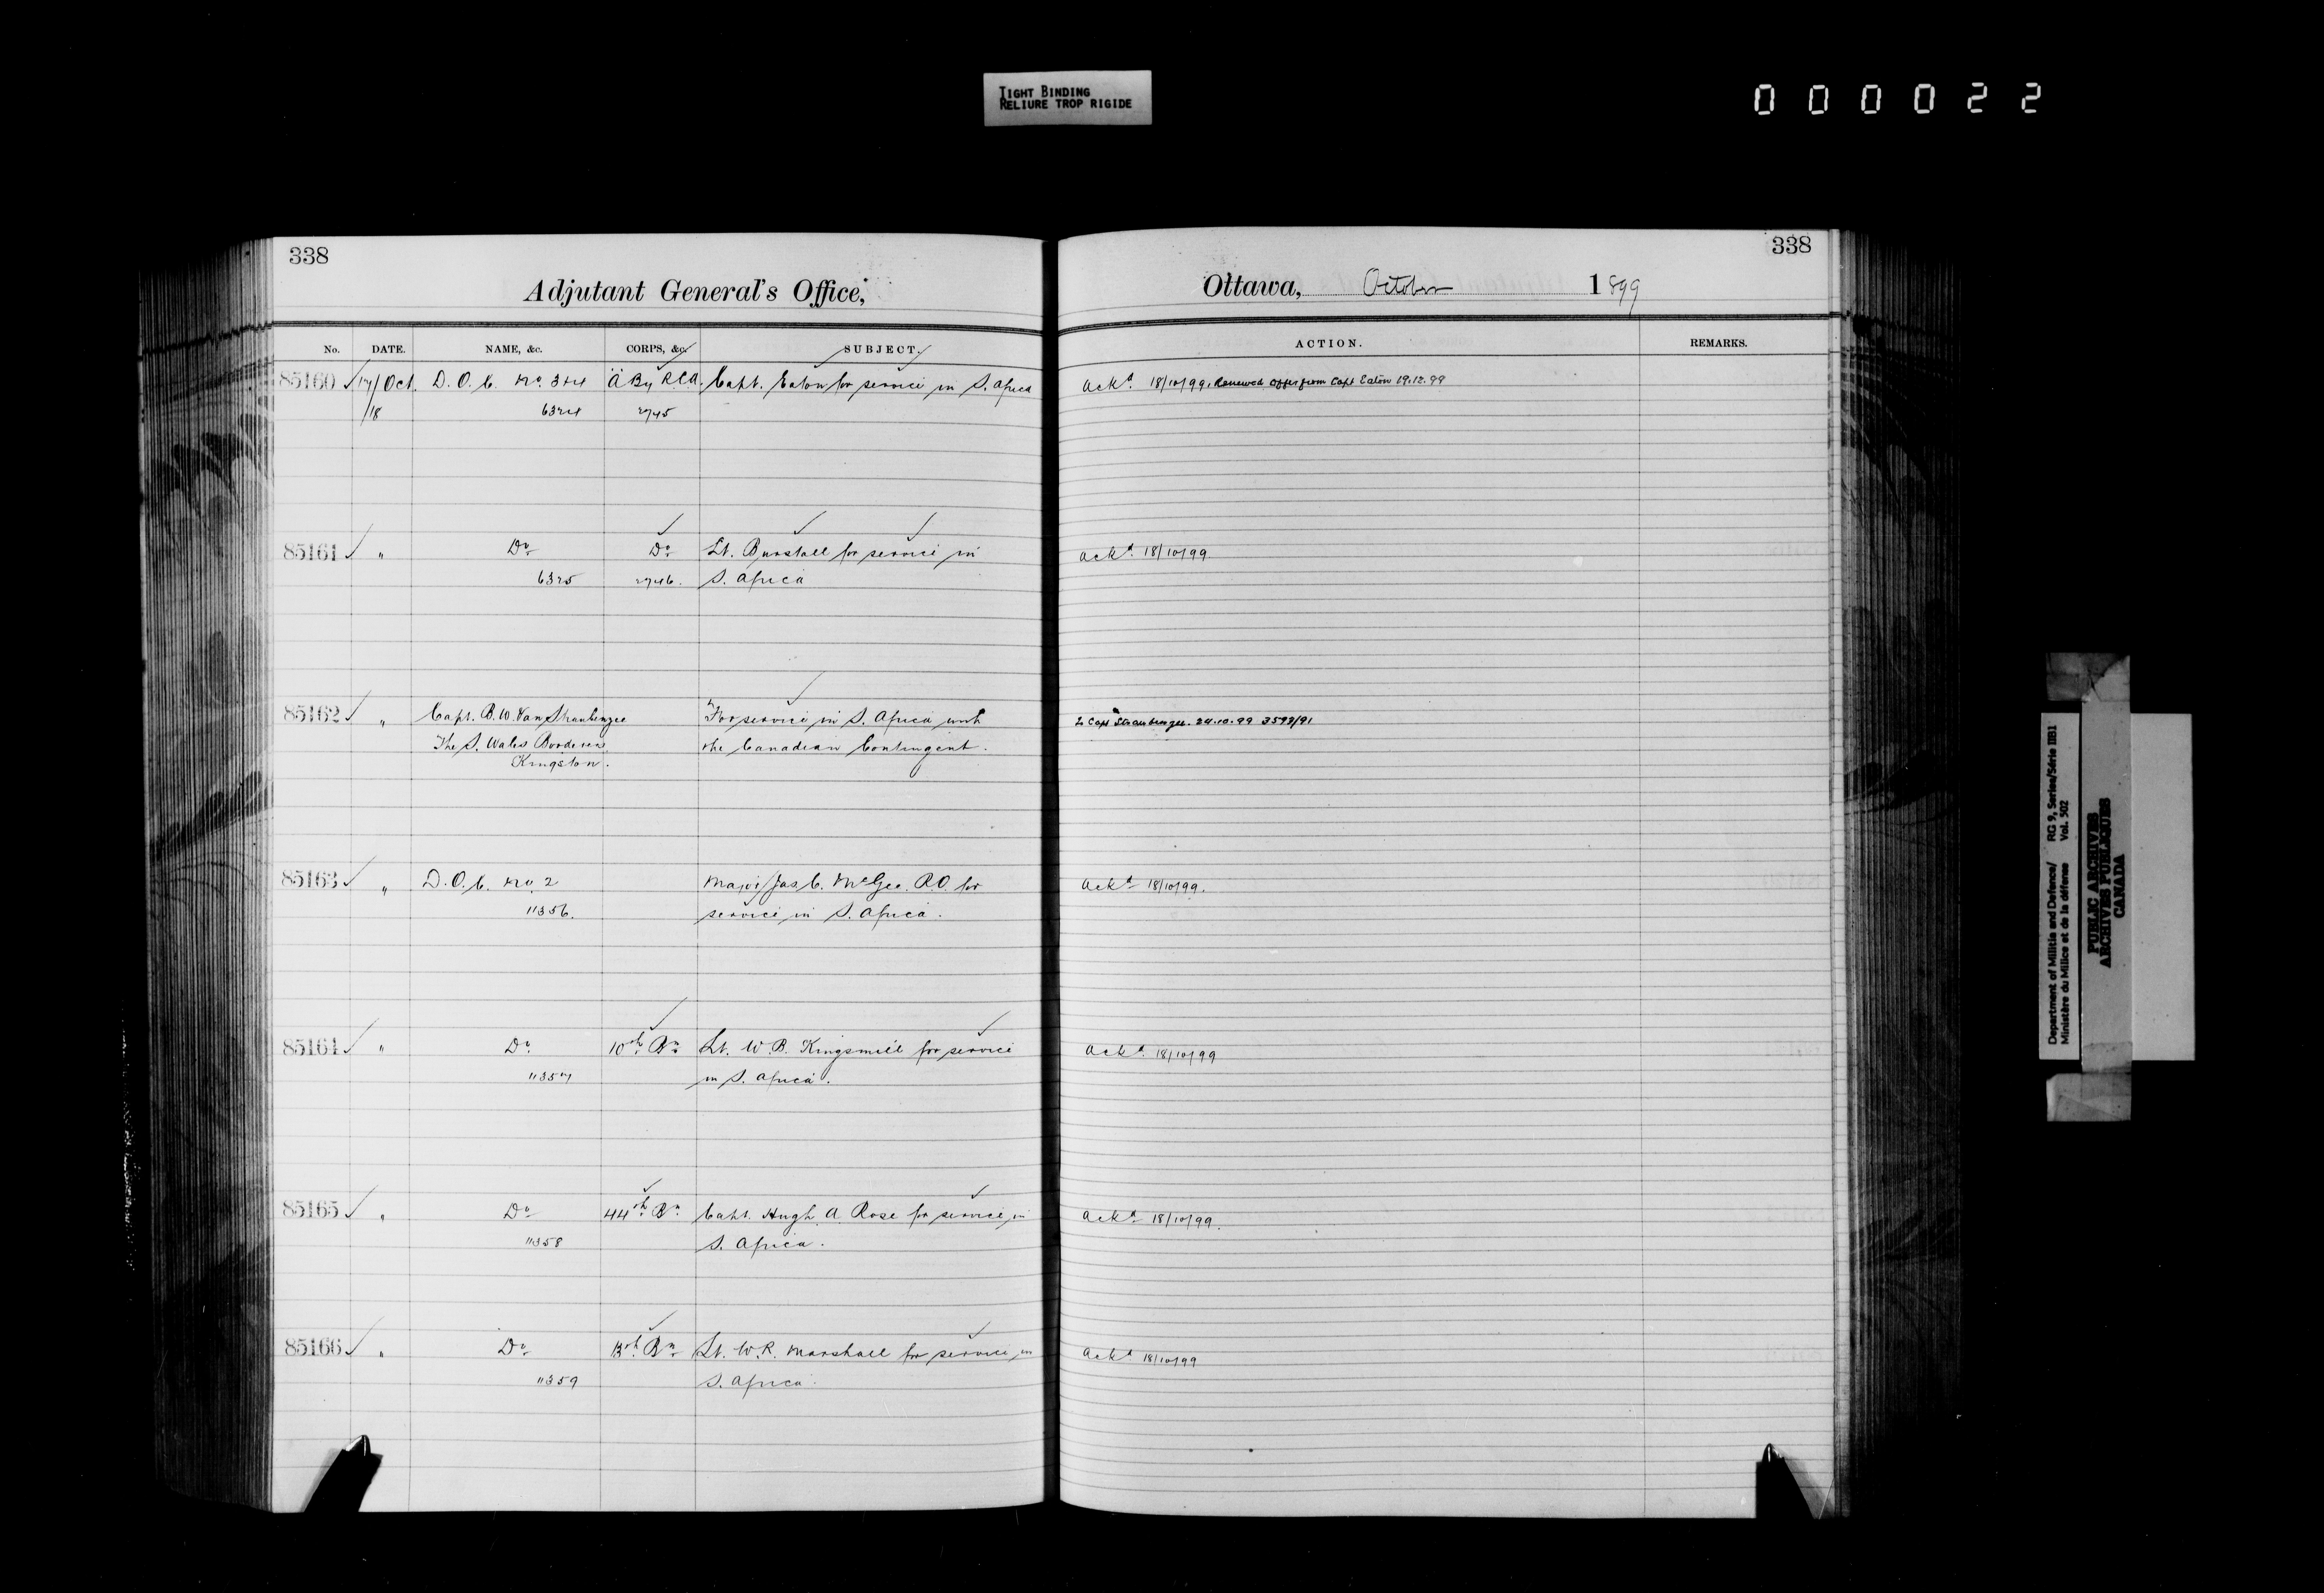 TIGHT BINDING
RELIURE TROP RIGIDE
000022
338
Adjutant General's Office,
No. DATE. NAME, &c. CORPS, &c. SUBJECT.
85160 17/Oct. D. O. C. No. 3 & 4 "A" By R.C.A. Capt. Eaton for service in S. Africa
/18 6324 2745
85161 " Do Do Lt. Burstall for service in
6325 2746. S. Africa
85162 " Capt. B. W. Van Straubenzee For service in S. Africa with
The S. Wales Borderers the Canadian Contingent.
Kingston.
85163 " D. O. C. No. 2 Major Jas C. McGee. R.O. for
11356. service in S. Africa.
85164 " Do 10th Bn Lt. W. B. Kingsmill for service
11357 in S. Africa.
85165 " Do 44th Bn Capt. Hugh A. Rose for service in
11358 S. Africa.
85166 " Do 13th Bn Lt. W. R. Marshall for service in
11359 S. Africa.
338
Ottawa, October 1899
ACTION. REMARKS.
Ackd. 18/10/99. Renewed offer from Capt Eaton 19.12.99
Ackd. 18/10/99
To Capt Straubenzee. 24.10.99 3599/91
Ackd 18/10/99.
Ackd. 18/10/99
Ackd 18/10/99.
Ackd 18/10/99
Department of Militia and Defence/ RG 9, Series/Série IIB1
Ministère du Milice et de la défense Vol. 502
PUBLIC ARCHIVES
ARCHIVES PUBLIQUES
CANADA